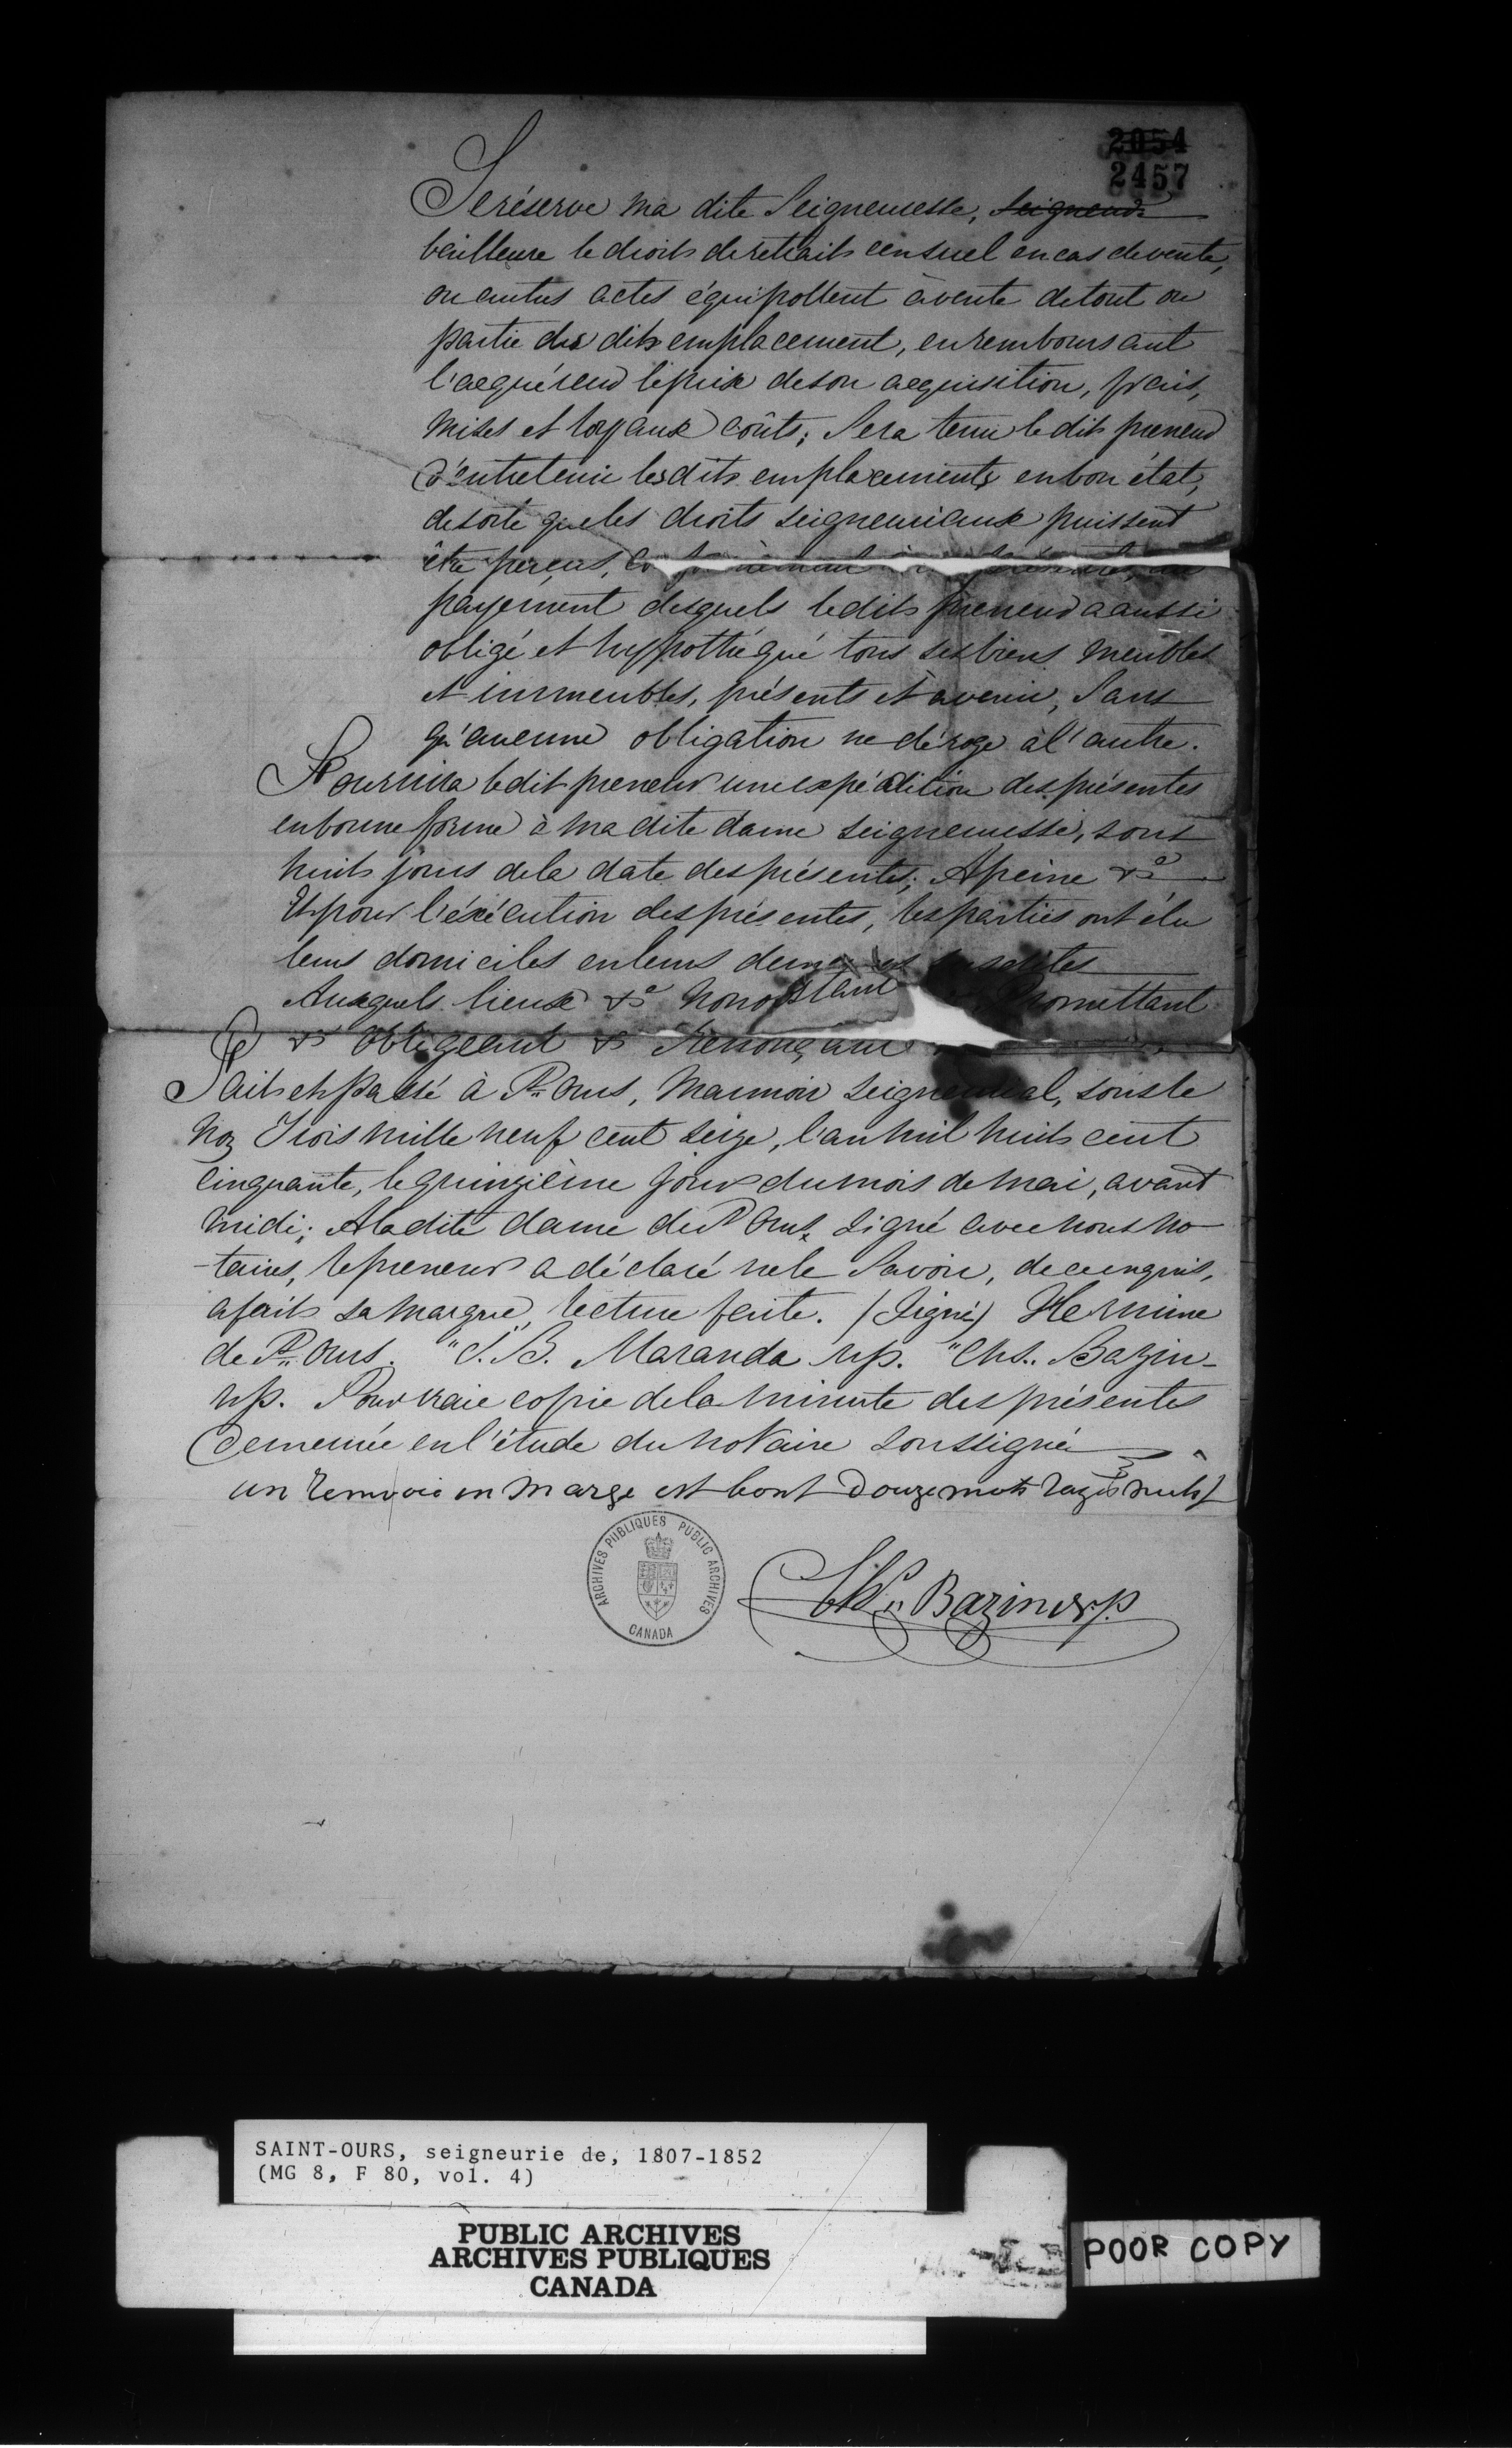 2054
2457
Se réserve ma dite Seigneuresse, Seigneur
bailleure le droits de retraits censuel en cas de vente,
ou autres actes équipollent à vente de tout ou
partie des dits emplacement, en remboursant
l'acquéreur le prix de son acquisition, frais,
mises et loyaux coûts; Sera tenu le dits preneur
d'entretenir les dits emplacements en bon état,
de sorte que les droits seigneuriaux puissent
être perçus,
payement desquels le dits preneur a aussi
obligé et hypothéqué tous ses biens meubles
et immeubles, présents et à venir, Sans
qu'aucune obligation ne déroge à l'autre.
Fournira le dit preneur une expédition des présentes
en bonne forme à ma dite dame seigneuresse, sous
huits jours de la date des présentes; A peine &a
Et pour l'éxécution des présentes, les parties ont élu
leurs domiciles en leurs susdites
Auxquels lieux &a Nonobstant Promettant
& Obligeant & Renonçant
Faits et passé à St. Ours, Mannoir Seigneurial, sous le
No. Trois mille neuf cent seize, l'an mil huits cent
cinquante, le quinzième jour du mois de mai, avant
midi; A la dite dame de St Ours signé avec nous no-
-taires, le preneur a déclaré ne le Savoir, de ce enquis,
a faits sa marque, lecture faite. (Signé) Hermine
de St. Ours. "J. B. Maranda np. "Chs. Bazin-
np. Pour vraie copie de la minute des présentes
demeurée en l'étude du notaire soussigné
un renvoi en marge est bon & Douze mots rayés nuls
Chs. Bazin n.p.
ARCHIVES PUBLIQUES PUBLIC ARCHIVES
CANADA
SAINT-OURS, seigneurie de, 1807-1852
(MG 8, F 80, vol. 4)
PUBLIC ARCHIVES
ARCHIVES PUBLIQUES
CANADA
POOR COPY